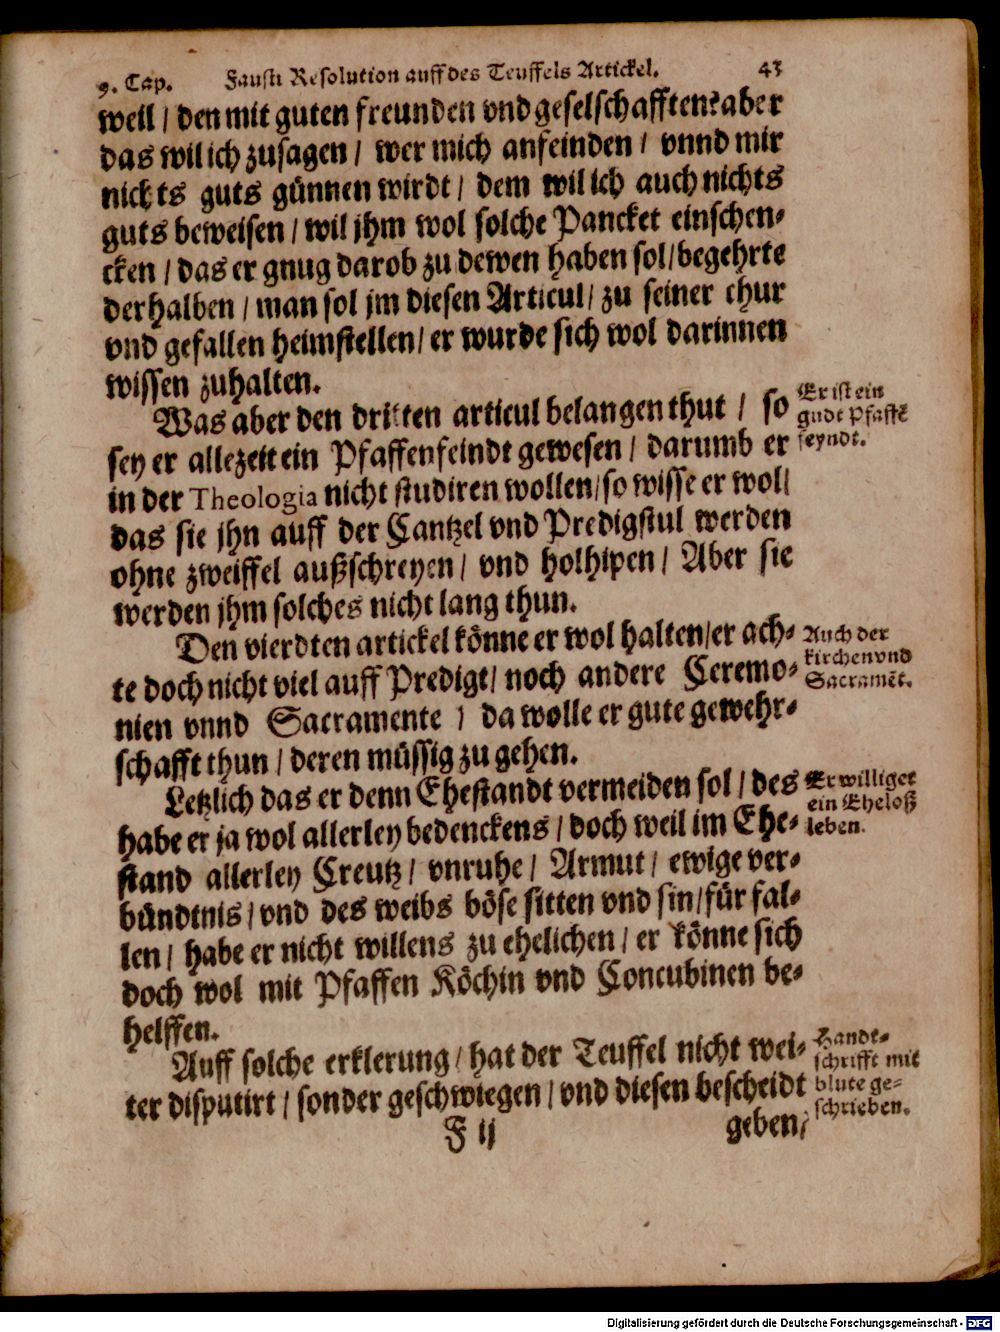 9. Cap. Fausti Resolution auff des Teuffels Artickel. 43
weil / den mit guten freunden vnd geselschafften? aber
das wil ich zusagen / wer mich anfeinden / vnnd mir
nichts guts günnen wirdt / dem wil ich auch nichts
guts beweisen / wil jhm wol solche Pancket einschen-
cken / das er gnug darob zu dewen haben sol / begehrte
derhalben / man sol jm diesen Articul / zu seiner chur
vnd gefallen heimstellen / er wurde sich wol darinnen
wissen zuhalten.
Was aber den dritten articul belangen thut / so
sey er allezeit ein Pfaffenfeindt gewesen / darumb er
in der Theologia nicht studiren wollen / so wisse er woll
das sie jhn auff der Cantzel vnd Predigstul werden
ohne zweiffel außschreyen / vnd holhipen / Aber sie
werden jhm solches nicht lang thun.
Er ist ein
gudt Pfaffē
feyndt.
Den vierdten artickel könne er wol halten / er ach-
te doch nicht viel auff Predigt / noch andere Ceremo-
nien vnnd Sacramente / da wolle er gute gewehr-
schafft thun / deren müssig zu gehen.
Auch der
kirchen vnd
Sacramēt.
Letzlich das er denn Ehestandt vermeiden sol / des
habe er ja wol allerley bedenckens / doch weil im Ehe-
stand allerley Creutz / vnruhe / Armut / ewige ver-
bündtnis / vnd des weibs böse sitten vnd sin / für fal-
len / habe er nicht willens zu ehelichen / er könne sich
doch wol mit Pfaffen Köchin vnd Concubinen be-
helffen.
Er williget
ein Eheloß
leben.
Auff solche erklerung / hat der Teuffel nicht wei-
ter disputirt / sonder geschwiegen / vnd diesen bescheidt
Handt-
schrifft mit
blute ge-
schrieben.
F ij geben /
Digitalisierung gefördert durch die Deutsche Forschungsgemeinschaft - DFG